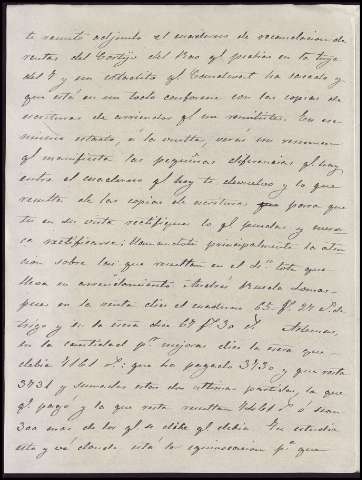 te remití adjunto el cuaderno de recaudacion de
rentas del Cortijo del qe pedias en la tuya
del 7 y un estadito qe ha sacado y
que está en un todo conforme con las copias de
escrituras de arriendos qe me remitistes. En ese
mismo estado, á la vuelta, verás un resumen
qe manifiesta las pequeñas diferencias qe hay
entre el cuaderno qe hoy te devuelvo y lo que
resulta de las copias de escritura para que
tu en su vista rectifiques lo qe puedas y
ca rectificarse. Llamandote principalmente la aten
cion sobre las que resultan en el lote que
lleva en arrendamiento Andres
pues en la renta dice el cuaderno 65 f. 27 de
trigo y en la dice 67 f 30 Ademas,
en la cantidad pr mejoras dice la que
debia 4161 r: que ha pagado 3730 y que resta
3731 y sumadas estas dos ultimas partidas, la que
qe pagó y la que resta resultan 4461 r ó sean
300 mas de los qe se dice qe debia. Tu estudia
esto y vé donde está la equivocacion pr que